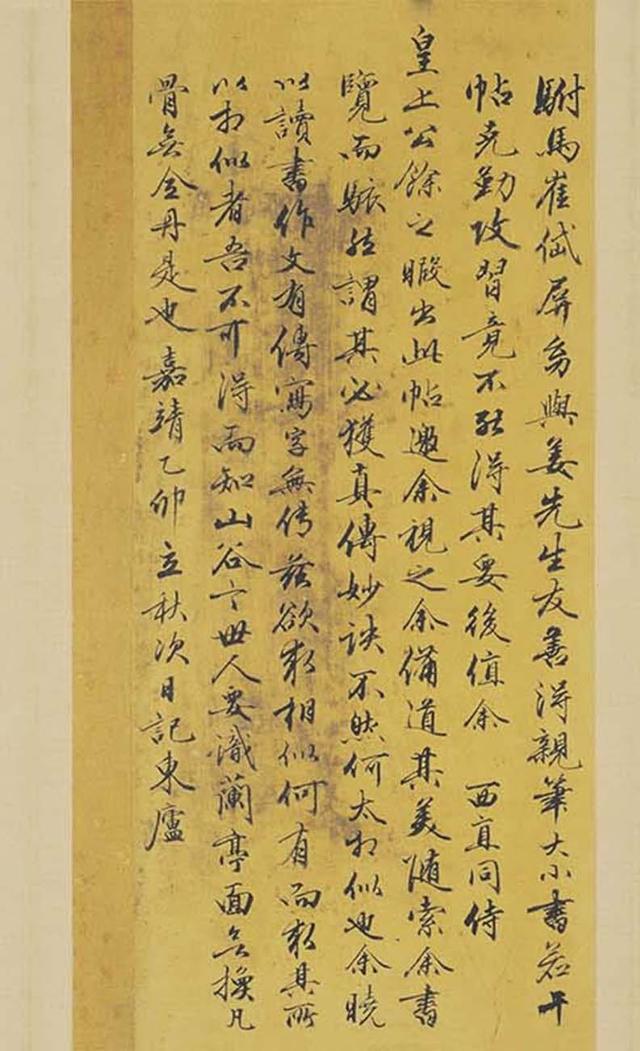 駙馬崔岱屏勇與姜先生友善得親筆大小書若干
帖克勤攻習竟不能得其要後值余 西直同侍
皇上公餘之暇出此帖邀余視之余備道其美隨索余書
覽而駭然謂其必獲真傳妙訣不然何太相似也余曉
以讀書作文有傳寫字無傳茲欲求相似何有而求其所
以相似者吾不可得而知山谷云世人要識蘭亭面無換凡
骨無金丹是也 嘉靖乙卯立秋次日記東廬